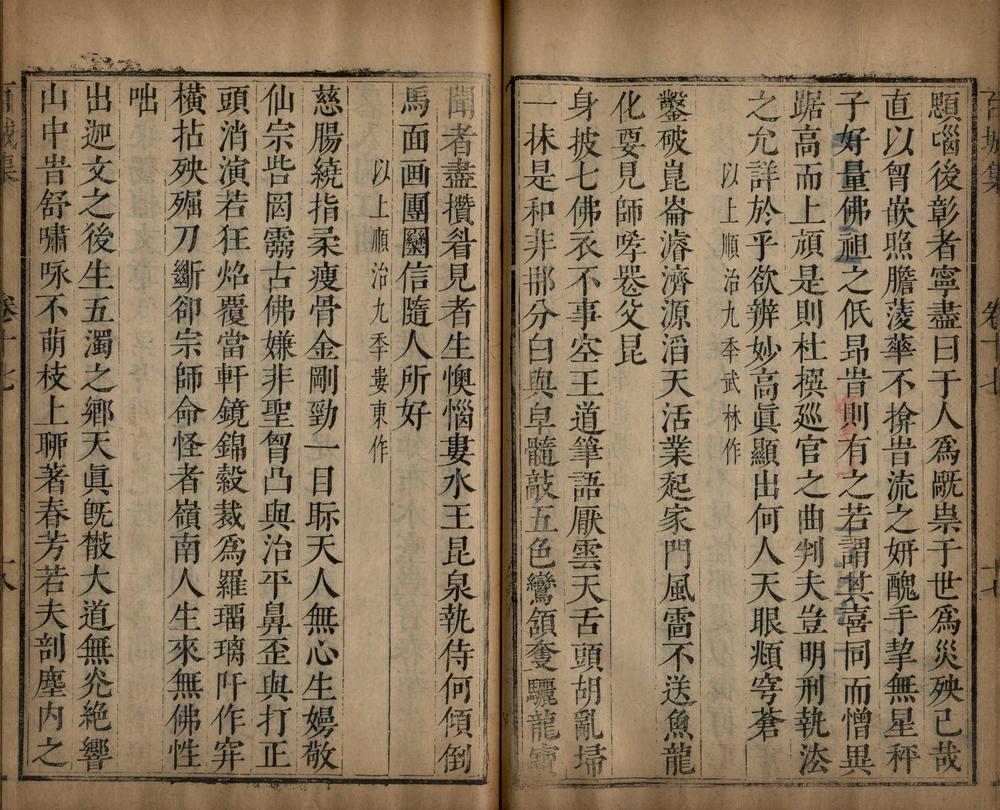 百城集
卷十七
十七
顋惱後彰者寧盡曰于人爲毷祟于世爲災殃已哉
直以胷嵌照膽菱華不揜昔流之妍醜手挈無星秤
子好量佛祖之低昂昔則有之若謂其喜同而憎異
踞高而上頏是則杜撰廵官之曲判夫豈明刑執法
之允詳於乎欲辨妙高眞顯出何人天眼頫穹蒼
以上順治九季武林作
鑿破崑崙濬濟源滔天活業起家門風雷不送魚龍
化要見師哮㗋父昆
身披七佛衣不事空王道筆語厭雲天舌頭胡亂埽
一抹是和非那分白與皁髓敲五色鸞頷奪驪龍寶
聞者盡攢眉見者生懊惱婁水王昆泉執侍何傾倒
馬面画團圞信隨人所好
以上順治九季婁東作
慈腸繞指柔瘦骨金剛勁一日眎天人無心生嫚敬
仙宗呰罔霧古佛嫌非聖胷凸與治平鼻歪與打正
頭消演若狂焰覆當軒鏡錦縠裁爲羅瑠璃阡作穽
橫拈殃殟刀斷卻宗師命怪者嶺南人生來無佛性
咄
出迦文之後生五濁之鄉天眞旣㪚大道無光絶響
山中昔舒嘯咏不萌枝上聊著春芳若夫剖塵內之
百城集
卷十七
十八